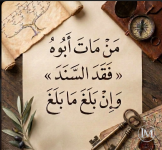 مَنْ مَاتَ أَبُوهُ
« فَقَدَ السَّنَدَ »
وَإِنْ بَلَغَ مَا بَلَغَ